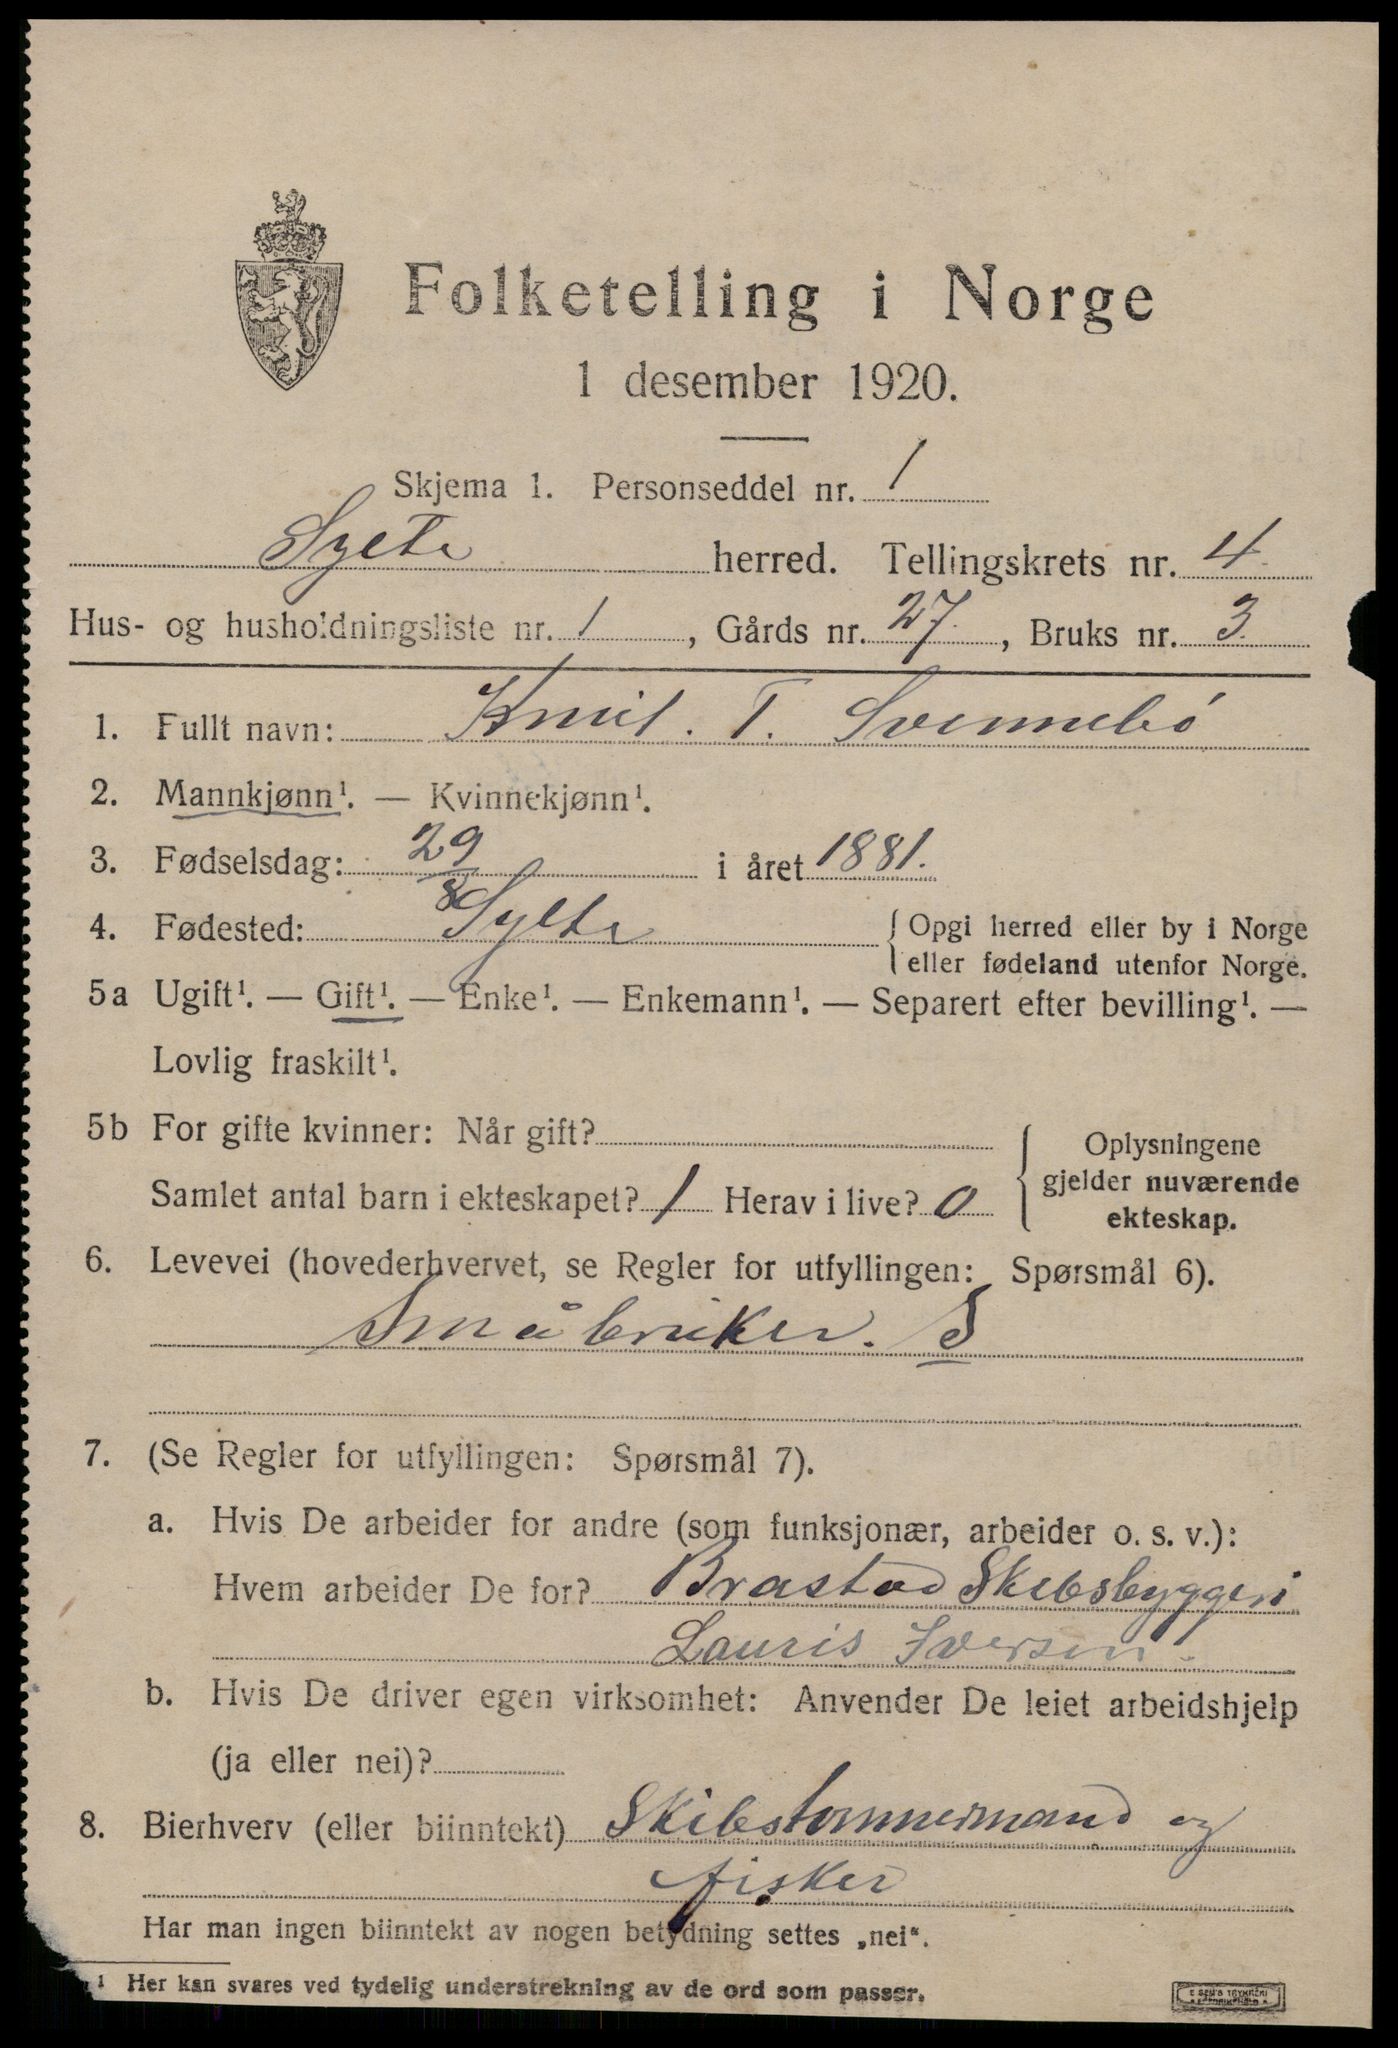 Folketelling i Norge
1 desember 1920.
Skjema 1. Personseddel nr. 1
Sylte herred. Tellingskrets nr. 4
Hus- og husholdningsliste nr. 1, Gårds nr. 27, Bruks nr. 3.
1. Fullt navn: Knut. T. Svennebö
2. Mannkjønn¹. — Kvinnekjønn¹.
3. Fødselsdag: 29/8 i året 1881.
4. Fødested: Sylte { Opgi herred eller by i Norge
eller fødeland utenfor Norge.
5a Ugift¹. — Gift¹. — Enke¹. — Enkemann¹. — Separert efter bevilling¹. —
Lovlig fraskilt¹.
5b For gifte kvinner: Når gift?
Samlet antal barn i ekteskapet? 1 Herav i live? 0
{ Oplysningene
gjelder nuværende
ekteskap.
6. Levevei (hovederhvervet, se Regler for utfyllingen: Spørsmål 6).
Småbruker. S
7. (Se Regler for utfyllingen: Spørsmål 7).
a. Hvis De arbeider for andre (som funksjonær, arbeider o. s. v.):
Hvem arbeider De for? Brastad Skibsbyggeri
Lauris Iversen.
b. Hvis De driver egen virksomhet: Anvender De leiet arbeidshjelp
(ja eller nei)?
8. Bierhverv (eller biinntekt) Skibstømmermand og
fisker
Har man ingen biinntekt av nogen betydning settes „nei“.
¹ Her kan svares ved tydelig understrekning av de ord som passer.